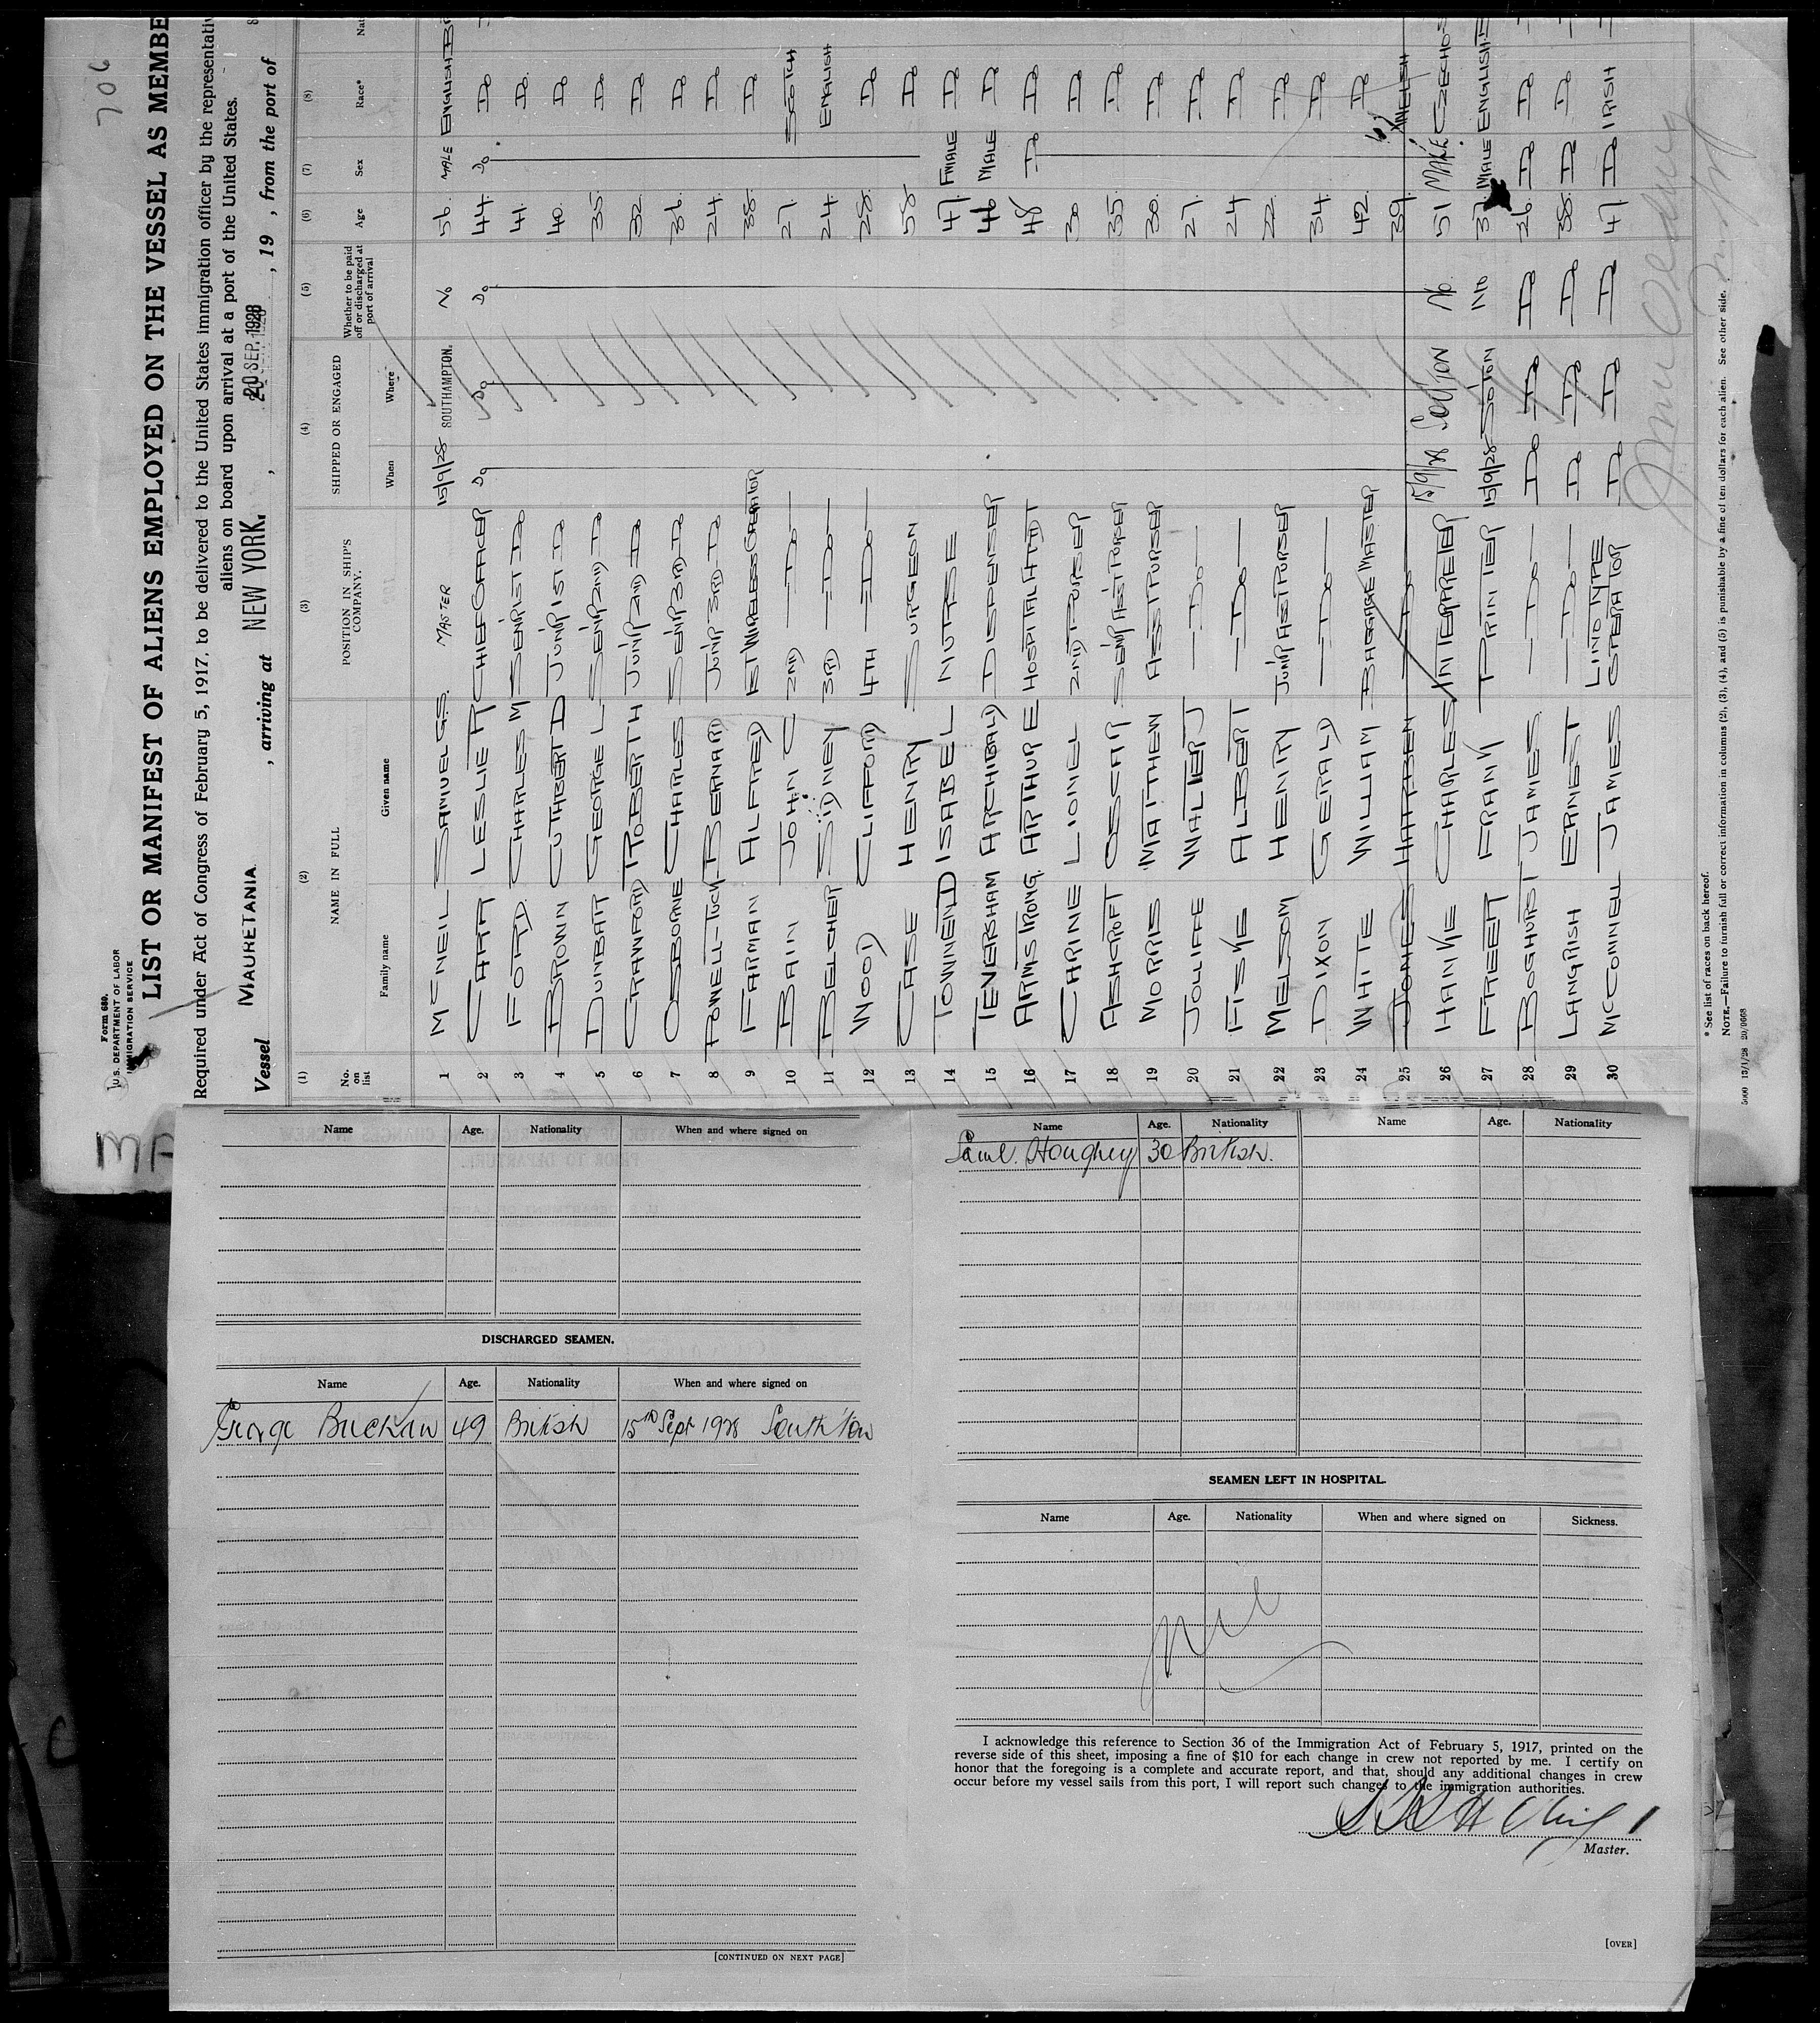 706
Form 689.
U.S. DEPARTMENT OF LABOR
IMMIGRATION SERVICE
LIST OR MANIFEST OF ALIENS EMPLOYED ON THE VESSEL AS MEMBE
Required under Act of Congress of February 5, 1917, to be delivered to the United States immigration officer by the representativ
aliens on board upon arrival at a port of the United States.
Vessel MAURETANIA, arriving at NEW YORK, 20 SEP. 1928, 19 , from the port of
(1) (2) (3) (4) (5) (6) (7) (8)
No. on list NAME IN FULL Family name Given name POSITION IN SHIP'S COMPANY. SHIPPED OR ENGAGED When Where Whether to be paid off or discharged at port of arrival Age Sex Race* Nat
1 MCNEIL SAMUEL G.S. MASTER 15/9/28 SOUTHAMPTON. No 56. MALE ENGLISH
2 CARR LESLIE R CHIEF OFFICER Do Do Do 44. Do Do
3 FORD. CHARLES M SEN'R 1ST Do 41. Do
4 BROWN CUTHBERT D JUN'R 1ST Do 40. Do
5 DUNBAR GEORGE L SEN'R 2ND Do 35. Do
6 CRAWFORD ROBERT H JUN'R 2ND Do 32. Do
7 OSBORNE CHARLES SEN'R 3RD Do 36. Do
8 POWELL-TUCK BERNARD JUN'R 3RD Do 24. Do
9 FARMAN ALFRED 1ST WIRELESS OPERATOR 38. Do
10 BAIN JOHN C 2ND Do 27. SCOTCH
11 BELCHER SIDNEY 3RD Do 24 ENGLISH
12 WOOD CLIFFORD 4TH Do 28. Do
13 CASE HENRY SURGEON 58 Do
14 TOWNEND ISABEL NURSE 47 FMALE Do
15 TEVERSHAM ARCHIBALD DISPENSER 46 MALE Do
16 ARMSTRONG. ARTHUR E HOSPITAL ATT'DT 48 Do Do
17 CARINE LIONEL 2ND PURSER 30 Do
18 ASHCROFT OSCAR SEN'R ASST PURSER 35. Do
19 MORRIS MATTHEW ASST PURSER 30. Do
20 JOLLIFFE WALTER J Do 27. Do
21 FISKE ALBERT Do 24 Do
22 MELSOM HENRY JUN'R ASST PURSER 22. Do
23 DIXON GERALD Do 34 Do
24 WHITE WILLIAM BAGGAGE MASTER 42. Do
25 JONES Do 39.
26 HANKE CHARLES INTERPRETER 15/9/28 So'ton No. 51 MALE CZECHOS
27 FREER FRANK PRINTER 15/9/28 SO'TON No MALE ENGLISH
28 BOGHURST JAMES Do Do Do Do 26. Do Do
29 LANGRISH ERNEST Do Do Do Do 38. Do Do
30 MCCONNELL JAMES LINOTYPE OPERATOR Do Do Do 47 Do IRISH
* See list of races on back hereof.
NOTE.—Failure to furnish full or correct information in columns (2), (3), (4), and (5) is punishable by a fine of ten dollars for each alien. See other side.
5000 13/1/28 20/0668
MA
Name Age. Nationality When and where signed on
DISCHARGED SEAMEN.
Name Age. Nationality When and where signed on
George Buchan 49 British 15th Sept 1928 South'ton
[CONTINUED ON NEXT PAGE]
Name Age. Nationality Name Age. Nationality
Saml. Houghey 30 British.
SEAMEN LEFT IN HOSPITAL.
Name Age. Nationality When and where signed on Sickness.
Nil
I acknowledge this reference to Section 36 of the Immigration Act of February 5, 1917, printed on the
reverse side of this sheet, imposing a fine of $10 for each change in crew not reported by me. I certify on
honor that the foregoing is a complete and accurate report, and that, should any additional changes in crew
occur before my vessel sails from this port, I will report such changes to the immigration authorities.
Master.
[OVER]